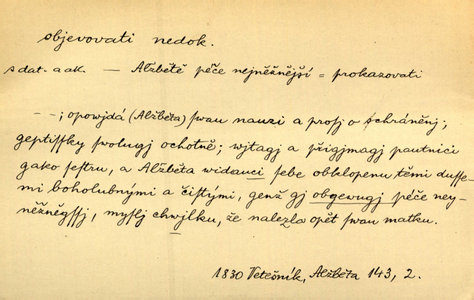 objevovati nedok.
s dat. a ak. — Alžbětě péče nejněžnější = prokazovati
– –; opowjdá (Alžběta) swau nauzi a prosj o schráněnj;
geptissky swolugj ochotně; wjtagj a přigjmagj pautnici
gako sestru, a Alžběta widauci sebe obklopenu těmi dusse-
mi boholubnými a čistými, genž gj obgewugj péče ney-
něžněgssj, myslj chwjlku, že nalezla opět swau matku.
1830 Vetešník, Alžběta 143, 2.